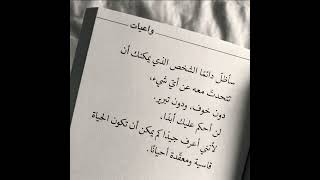 واعيات
سأظلّ دائمًا الشخص الذي يمكنك أن
تتحدث معه عن أيّ شيء،
دون خوف، ودون تبرير.
لن أحكم عليك أبدًا،
لأنني أعرف جيدًا كم يمكن أن تكون الحياة
قاسية ومعقّدة أحيانًا.